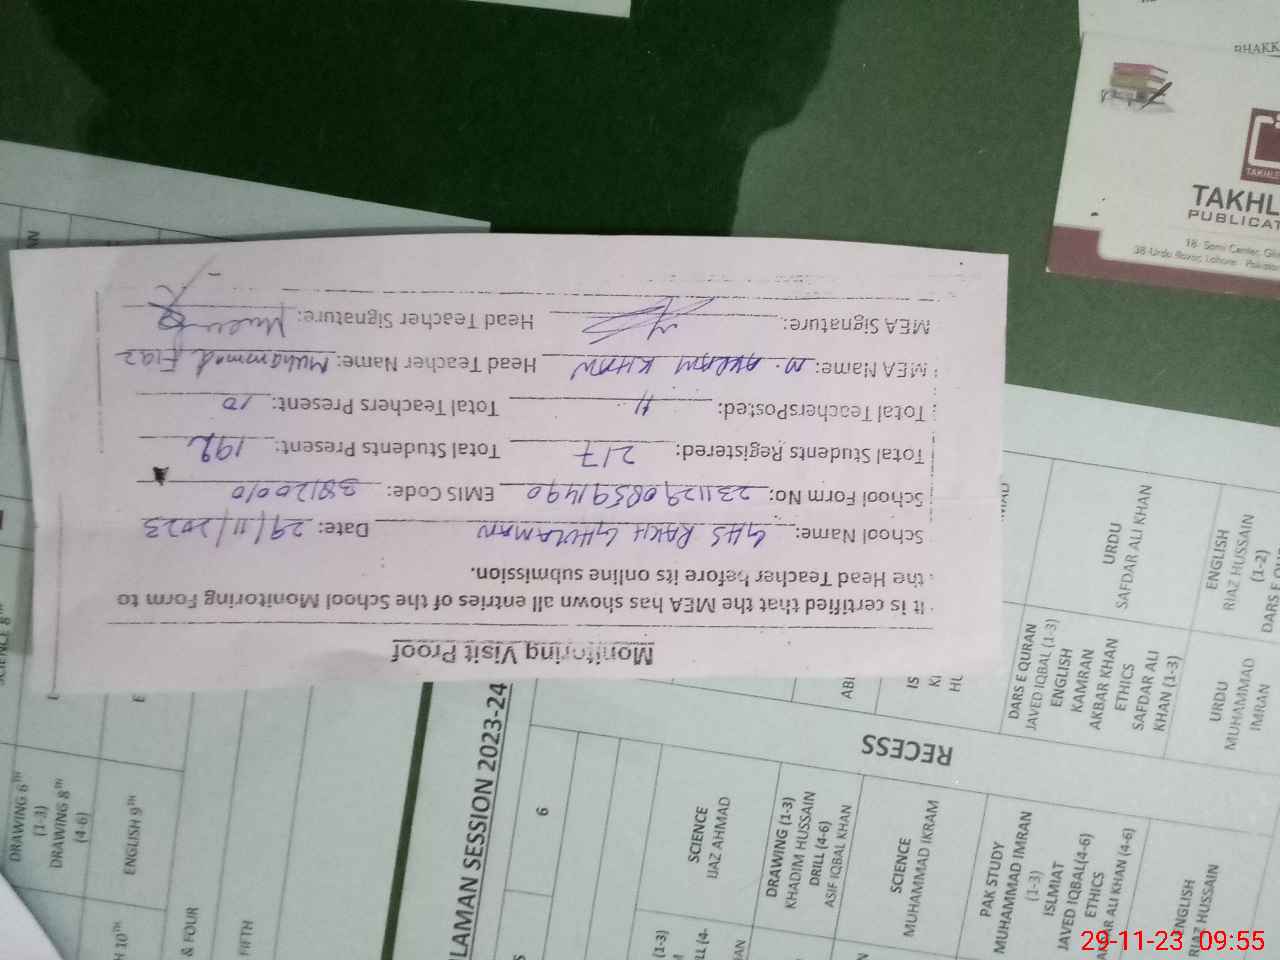 Monitoring Visit Proof
It is certified that the MEA has shown all entries of the School Monitoring Form to
the Head Teacher before its online submission.
School Name: GHS RAKH GHULAMAN Date: 29/11/2023
School Form No: 23112908591490 EMIS Code: 38120010
Total Students Registered: 217 Total Students Present: 192
Total TeachersPosted: 11 Total Teachers Present: 10
MEA Name: M. AKRAM KHAN Head Teacher Name: Muhammad Fiaz
MEA Signature: Head Teacher Signature:
TAKHL
PUBLICAT
18- Sami Center,
38-Urdu Bazar, Lahore - Pakista
LAMAN SESSION 2023-24
6
RECESS
SCIENCE
IJAZ AHMAD
DRAWING (1-3)
KHADIM HUSSAIN
DRILL (4-6)
ASIF IQBAL KHAN
SCIENCE
MUHAMMAD IKRAM
PAK STUDY
MUHAMMAD IMRAN
(1-3)
ISLMIAT
JAVED IQBAL(4-6)
ETHICS
AR ALI KHAN (4-6)
ENGLISH
RIAZ HUSSAIN
DARS E QURAN
JAVED IQBAL (1-3)
ENGLISH
KAMRAN
AKBAR KHAN
ETHICS
SAFDAR ALI
KHAN (1-3)
URDU
MUHAMMAD
IMRAN
URDU
SAFDAR ALI KHAN
ENGLISH
RIAZ HUSSAIN
(1-2)
DARS E
DRAWING 6TH
(1-3)
DRAWING 8TH
(4-6)
ENGLISH 9TH
H 10TH
& FOUR
FIFTH
29-11-23 09:55